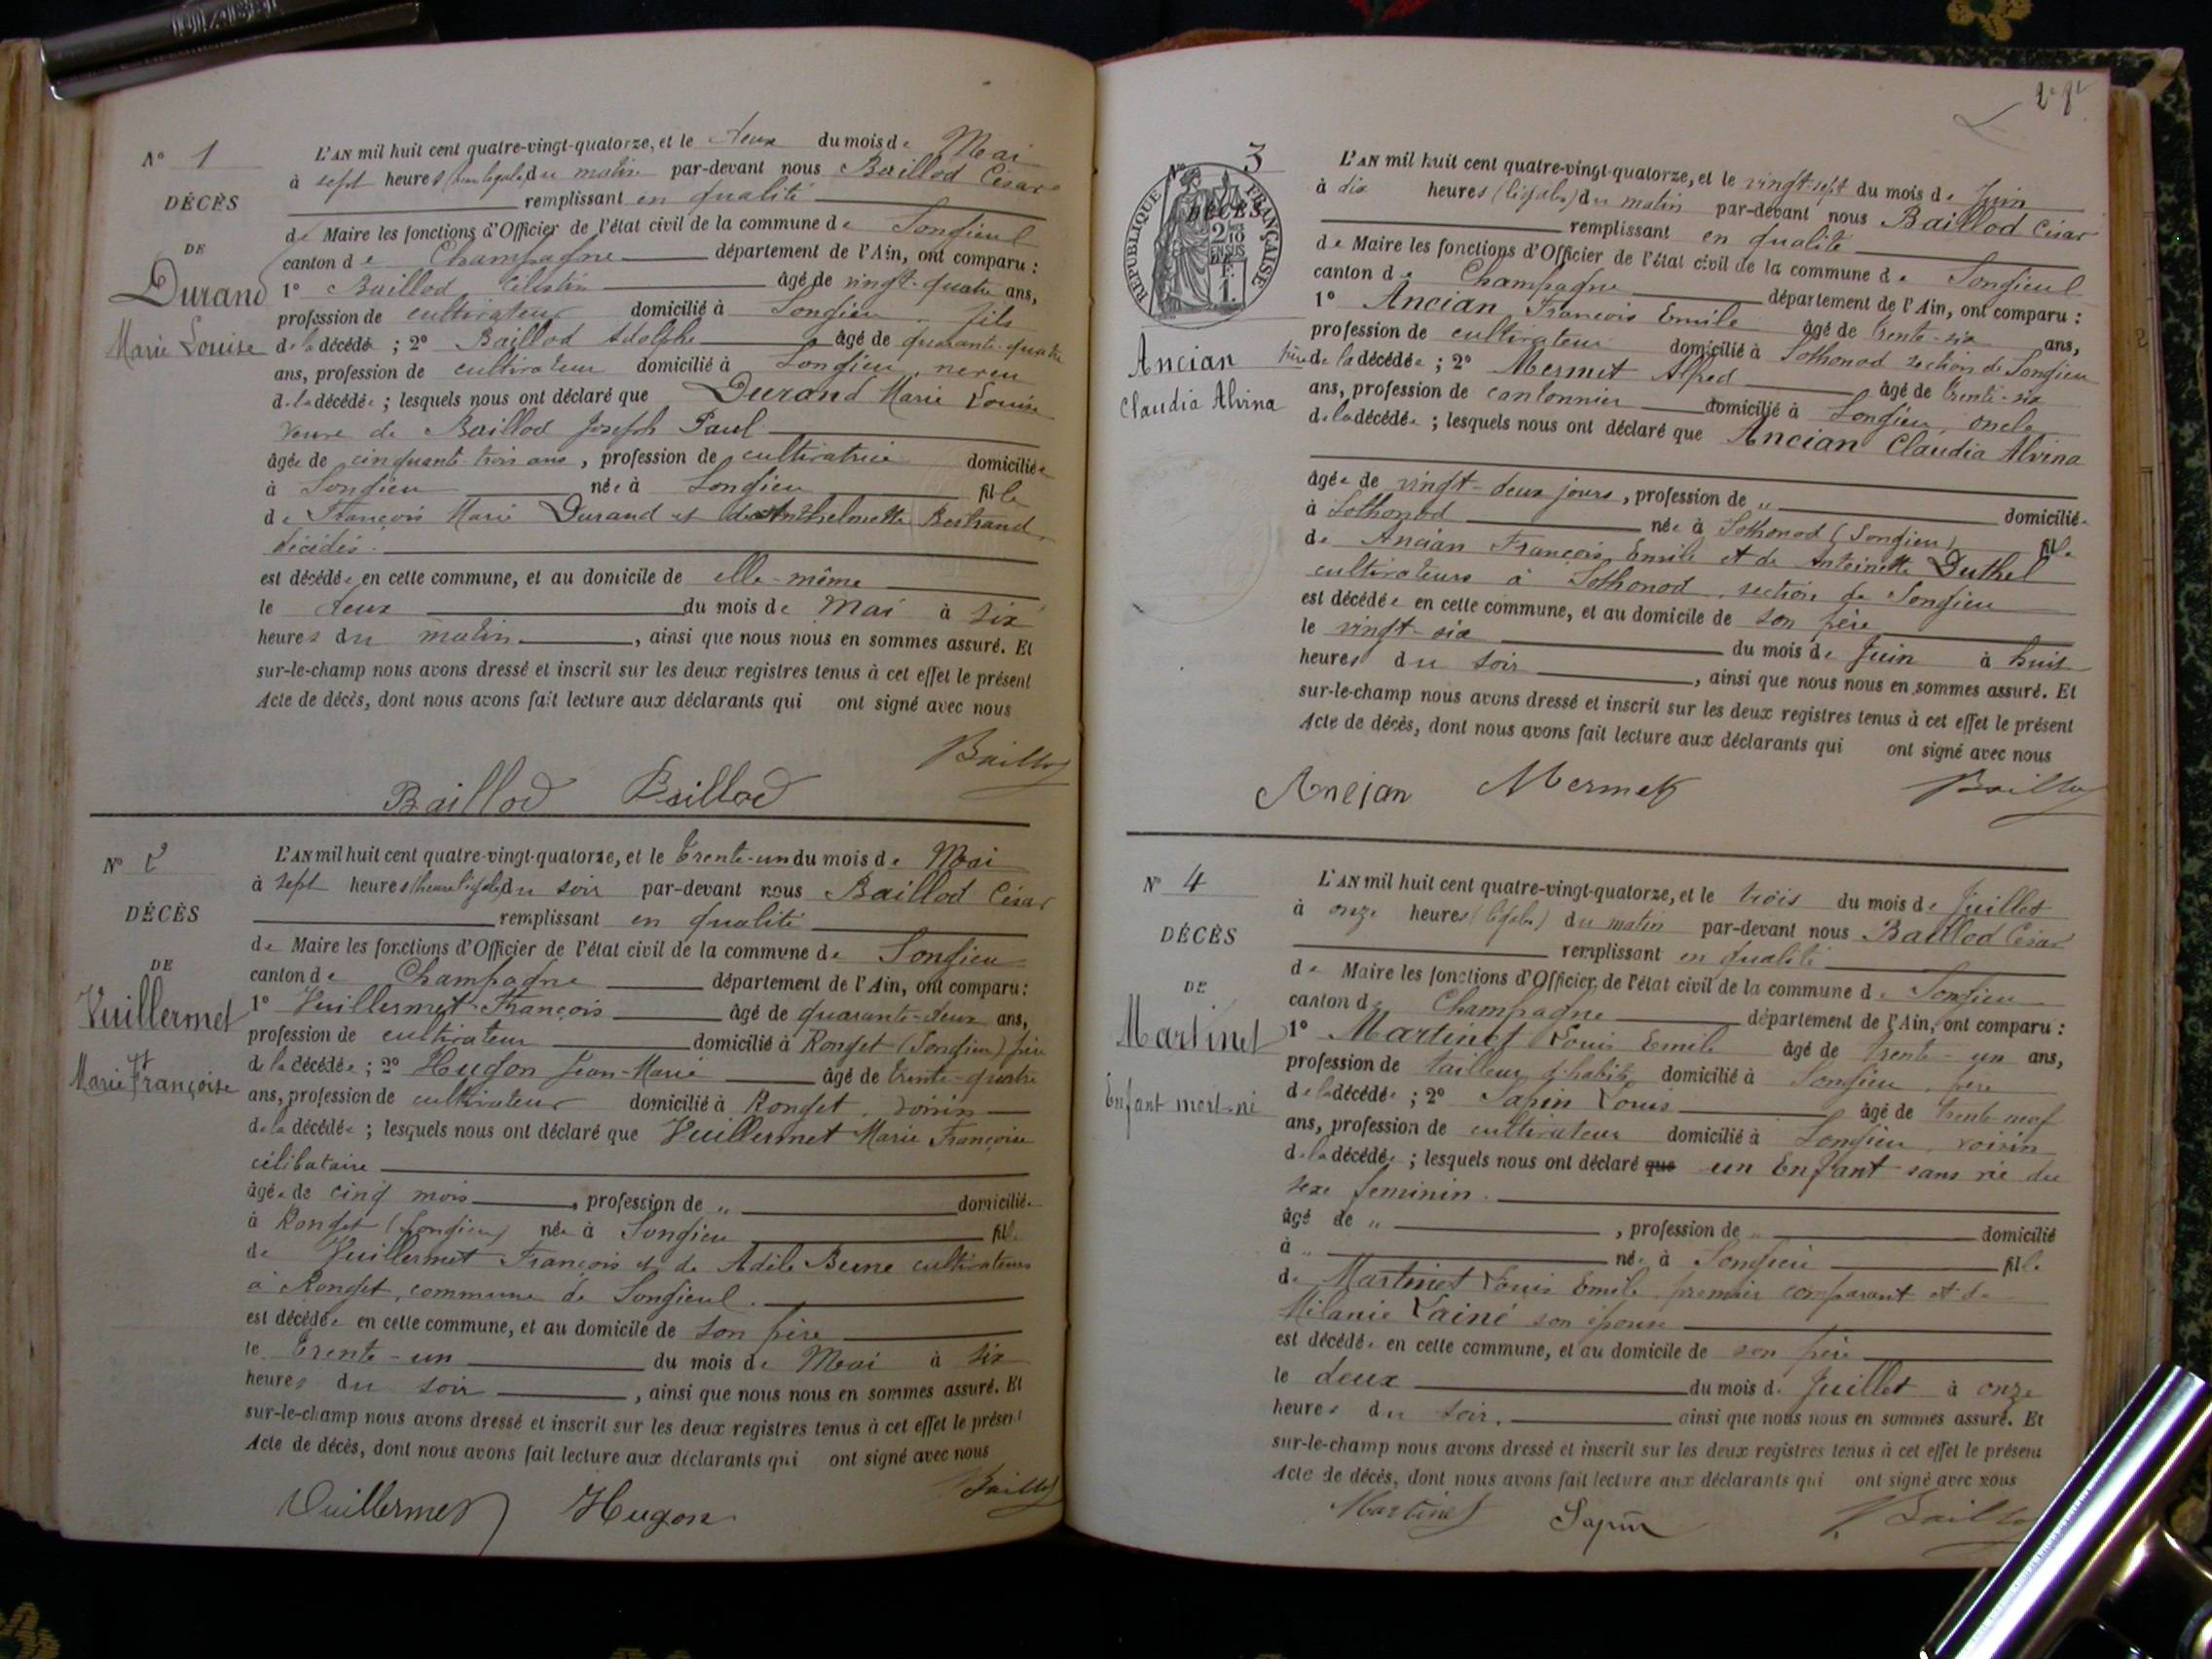 N° 1
DÉCÈS
DE
Durand
Marie Louise
L'AN mil huit cent quatre-vingt-quatorze, et le deux du mois de Mai
à sept heures (heure légale) du matin par-devant nous Baillod César
remplissant en qualité
de Maire les fonctions d'Officier de l'état civil de la commune de Songieul
canton de Champagne département de l'Ain, ont comparu :
1° Baillod Célestin âgé de vingt-quatre ans,
profession de cultivateur domicilié à Songieu fils
de la décédée ; 2° Baillod Adolphe âgé de quarante-quatre
ans, profession de cultivateur domicilié à Songieu, neveu
de la décédée ; lesquels nous ont déclaré que Durand Marie Louise
veuve de Baillod Joseph Paul
âgée de cinquante trois ans, profession de cultivatrice domiciliée
à Songieu née à Songieu fille
de François Marie Durand et de Anthelmette Bertrand,
décédés.
est décédée en cette commune, et au domicile de elle-même
le deux du mois de Mai à six
heures du matin, ainsi que nous nous en sommes assuré. Et
sur-le-champ nous avons dressé et inscrit sur les deux registres tenus à cet effet le présent
Acte de décès, dont nous avons fait lecture aux déclarants qui ont signé avec nous
Baillod
Baillod Baillod
N° 2
DÉCÈS
DE
Vuillermet
Marie Françoise
L'AN mil huit cent quatre-vingt-quatorze, et le trente-un du mois de Mai
à sept heures (heure légale) du soir par-devant nous Baillod César
remplissant en qualité
de Maire les fonctions d'Officier de l'état civil de la commune de Songieu
canton de Champagne département de l'Ain, ont comparu :
1° Vuillermet François âgé de quarante-deux ans,
profession de cultivateur domicilié à Ronget (Songieu) père
de la décédée ; 2° Hugon Jean-Marie âgé de trente-quatre
ans, profession de cultivateur domicilié à Ronget, voisin
de la décédée ; lesquels nous ont déclaré que Vuillermet Marie Françoise
célibataire
âgée de cinq mois, profession de " domiciliée
à Ronget (Songieu) née à Songieu fille
de Vuillermet François et de Adèle Berne cultivateurs
à Ronget, commune de Songieul.
est décédée en cette commune, et au domicile de son père
le trente-un du mois de Mai à six
heures du soir, ainsi que nous nous en sommes assuré. Et
sur-le-champ nous avons dressé et inscrit sur les deux registres tenus à cet effet le présent
Acte de décès, dont nous avons fait lecture aux déclarants qui ont signé avec nous
Vuillermet Hugon Baillod
N° 3
RÉPUBLIQUE FRANÇAISE
DÉCÈS
2/10 EN SUS
1 F.
Ancian
Claudia Alvina
L'AN mil huit cent quatre-vingt-quatorze, et le vingt-sept du mois de Juin
à dix heures (légales) du matin par-devant nous Baillod César
remplissant en qualité
de Maire les fonctions d'Officier de l'état civil de la commune de Songieul
canton de Champagne département de l'Ain, ont comparu :
1° Ancian François Emile âgé de trente-six ans,
profession de cultivateur domicilié à Sothonod section de Songieu
père de la décédée ; 2° Mermet Alfred âgé de trente-six
ans, profession de cantonnier domicilié à Songieu, oncle
de la décédée ; lesquels nous ont déclaré que Ancian Claudia Alvina
âgée de vingt-deux jours, profession de " domiciliée
à Sothonod née à Sothonod (Songieu) fille
de Ancian François Emile et de Antoinette Duthel
cultivateurs à Sothonod, section de Songieu
est décédée en cette commune, et au domicile de son père
le vingt-six du mois de Juin à huit
heures du soir, ainsi que nous nous en sommes assuré. Et
sur-le-champ nous avons dressé et inscrit sur les deux registres tenus à cet effet le présent
Acte de décès, dont nous avons fait lecture aux déclarants qui ont signé avec nous
Ancian Mermet Baillod
N° 4
DÉCÈS
DE
Martinet
Enfant mort-né
L'AN mil huit cent quatre-vingt-quatorze, et le trois du mois de Juillet
à onze heures (légales) du matin par-devant nous Baillod César
remplissant en qualité
de Maire les fonctions d'Officier de l'état civil de la commune de Songieu
canton de Champagne département de l'Ain, ont comparu :
1° Martinet Louis Emile âgé de trente-un ans,
profession de tailleur d'habits domicilié à Songieu, père
de la décédée ; 2° Sapin Louis âgé de trente-neuf
ans, profession de cultivateur domicilié à Songieu voisin
de la décédée ; lesquels nous ont déclaré que un Enfant sans vie du
sexe feminin.
âgé de ", profession de " domicilié
à " née à Songieu fille
de Martinet Louis Emile premier comparant et de
Mélanie Lainé son épouse
est décédée en cette commune, et au domicile de son père
le deux du mois de Juillet à onze
heures du soir, ainsi que nous nous en sommes assuré. Et
sur-le-champ nous avons dressé et inscrit sur les deux registres tenus à cet effet le présent
Acte de décès, dont nous avons fait lecture aux déclarants qui ont signé avec nous
Martinet Sapin Baillod